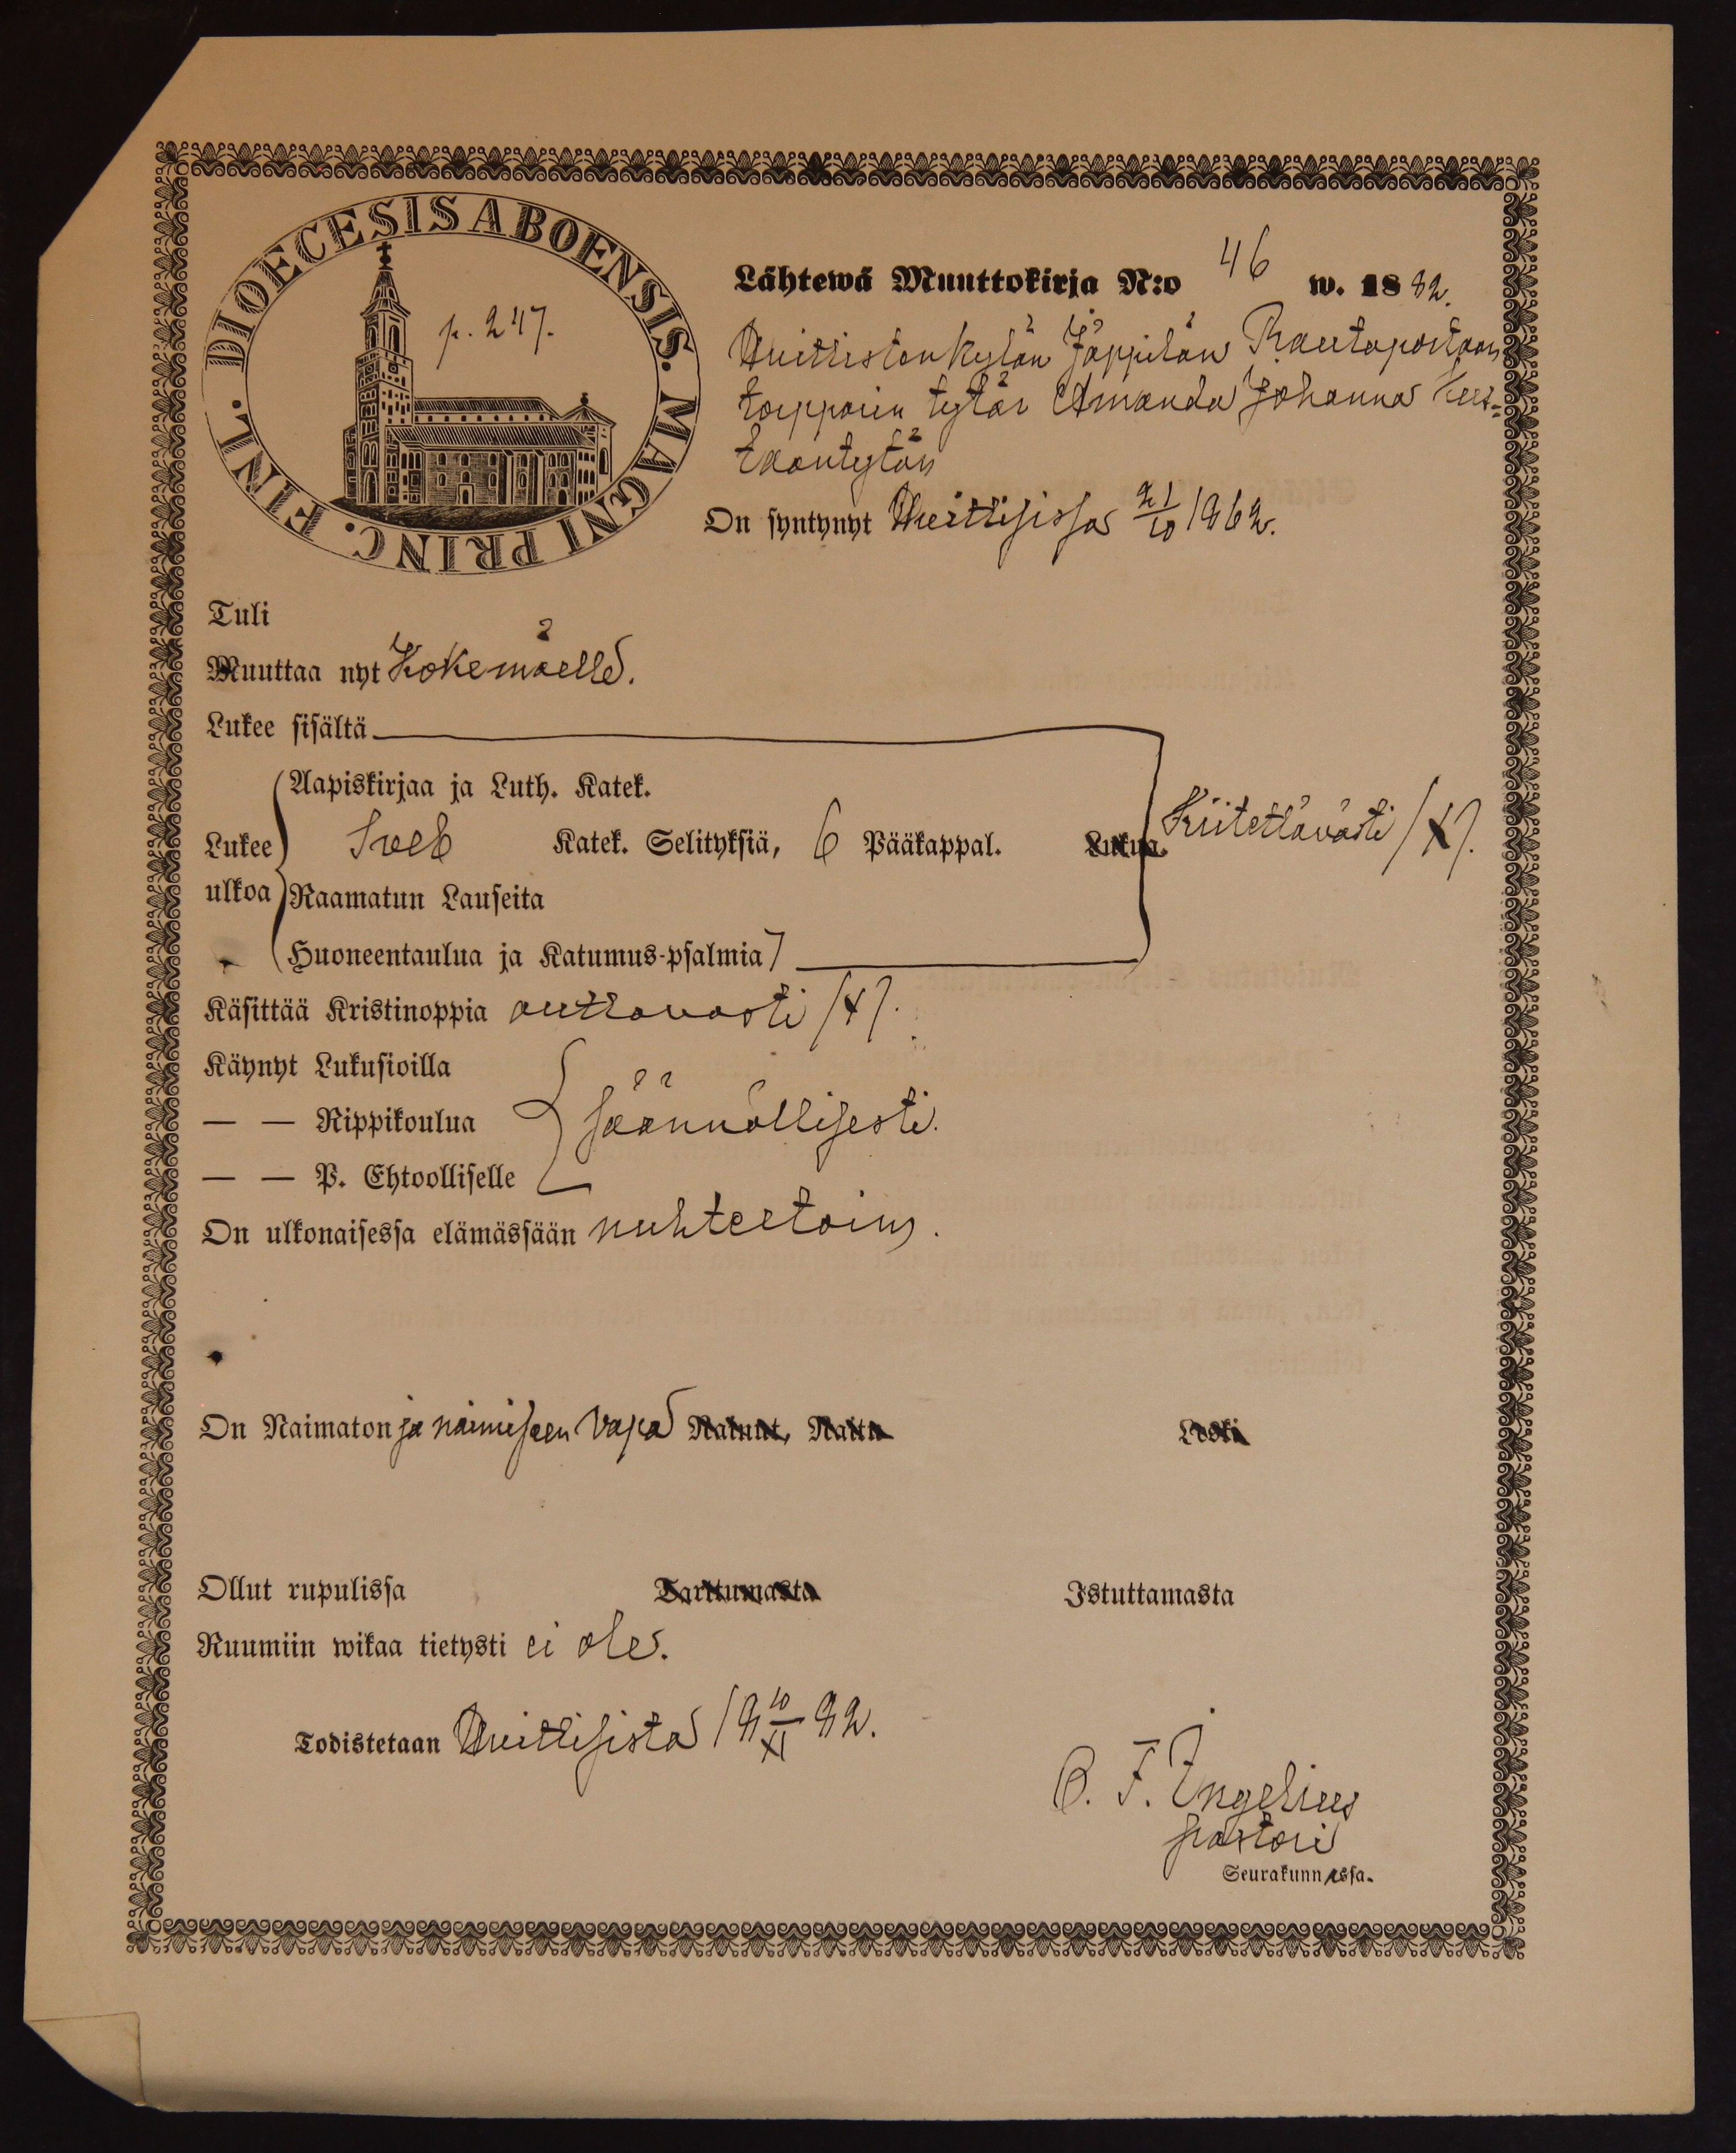 DIOECESIS ABOENSIS. MAGNI PRINC. FINL.
p. 247.
Lähtewä Muuttokirja N:o 46 w. 1882.
Huittistenkylän Jäppilän Rautaportaan
torpparin tytär Amanda Johanna Kus-
taantytär
On syntynyt Huittisissa 21/10 1862.
Tuli
Muuttaa nyt Kokemäelle.
Lukee sisältä
Aapiskirjaa ja Luth. Katek.
Lukee ulkoa Sveb Katek. Selityksiä, 6 Pääkappal. Lukua. Kiitettävästi /X/.
Raamatun Lauseita
Huoneentaulua ja Katumus-psalmia 7
Käsittää Kristinoppia auttavasti /X/.
Käynyt Lukusioilla
— — Rippikoulua säännöllisesti.
— — P. Ehtoolliselle
On ulkonaisessa elämässään nuhteetoin.
On Naimaton ja naimiseen vapa Nainut, Naitu Leski
Ollut rupulissa Tarttumasta Istuttamasta
Ruumiin wikaa tietysti ei ole.
Todistetaan Huittisista 18 10/XI 82.
F. Ingelius
pastori
Seurakunnassa.